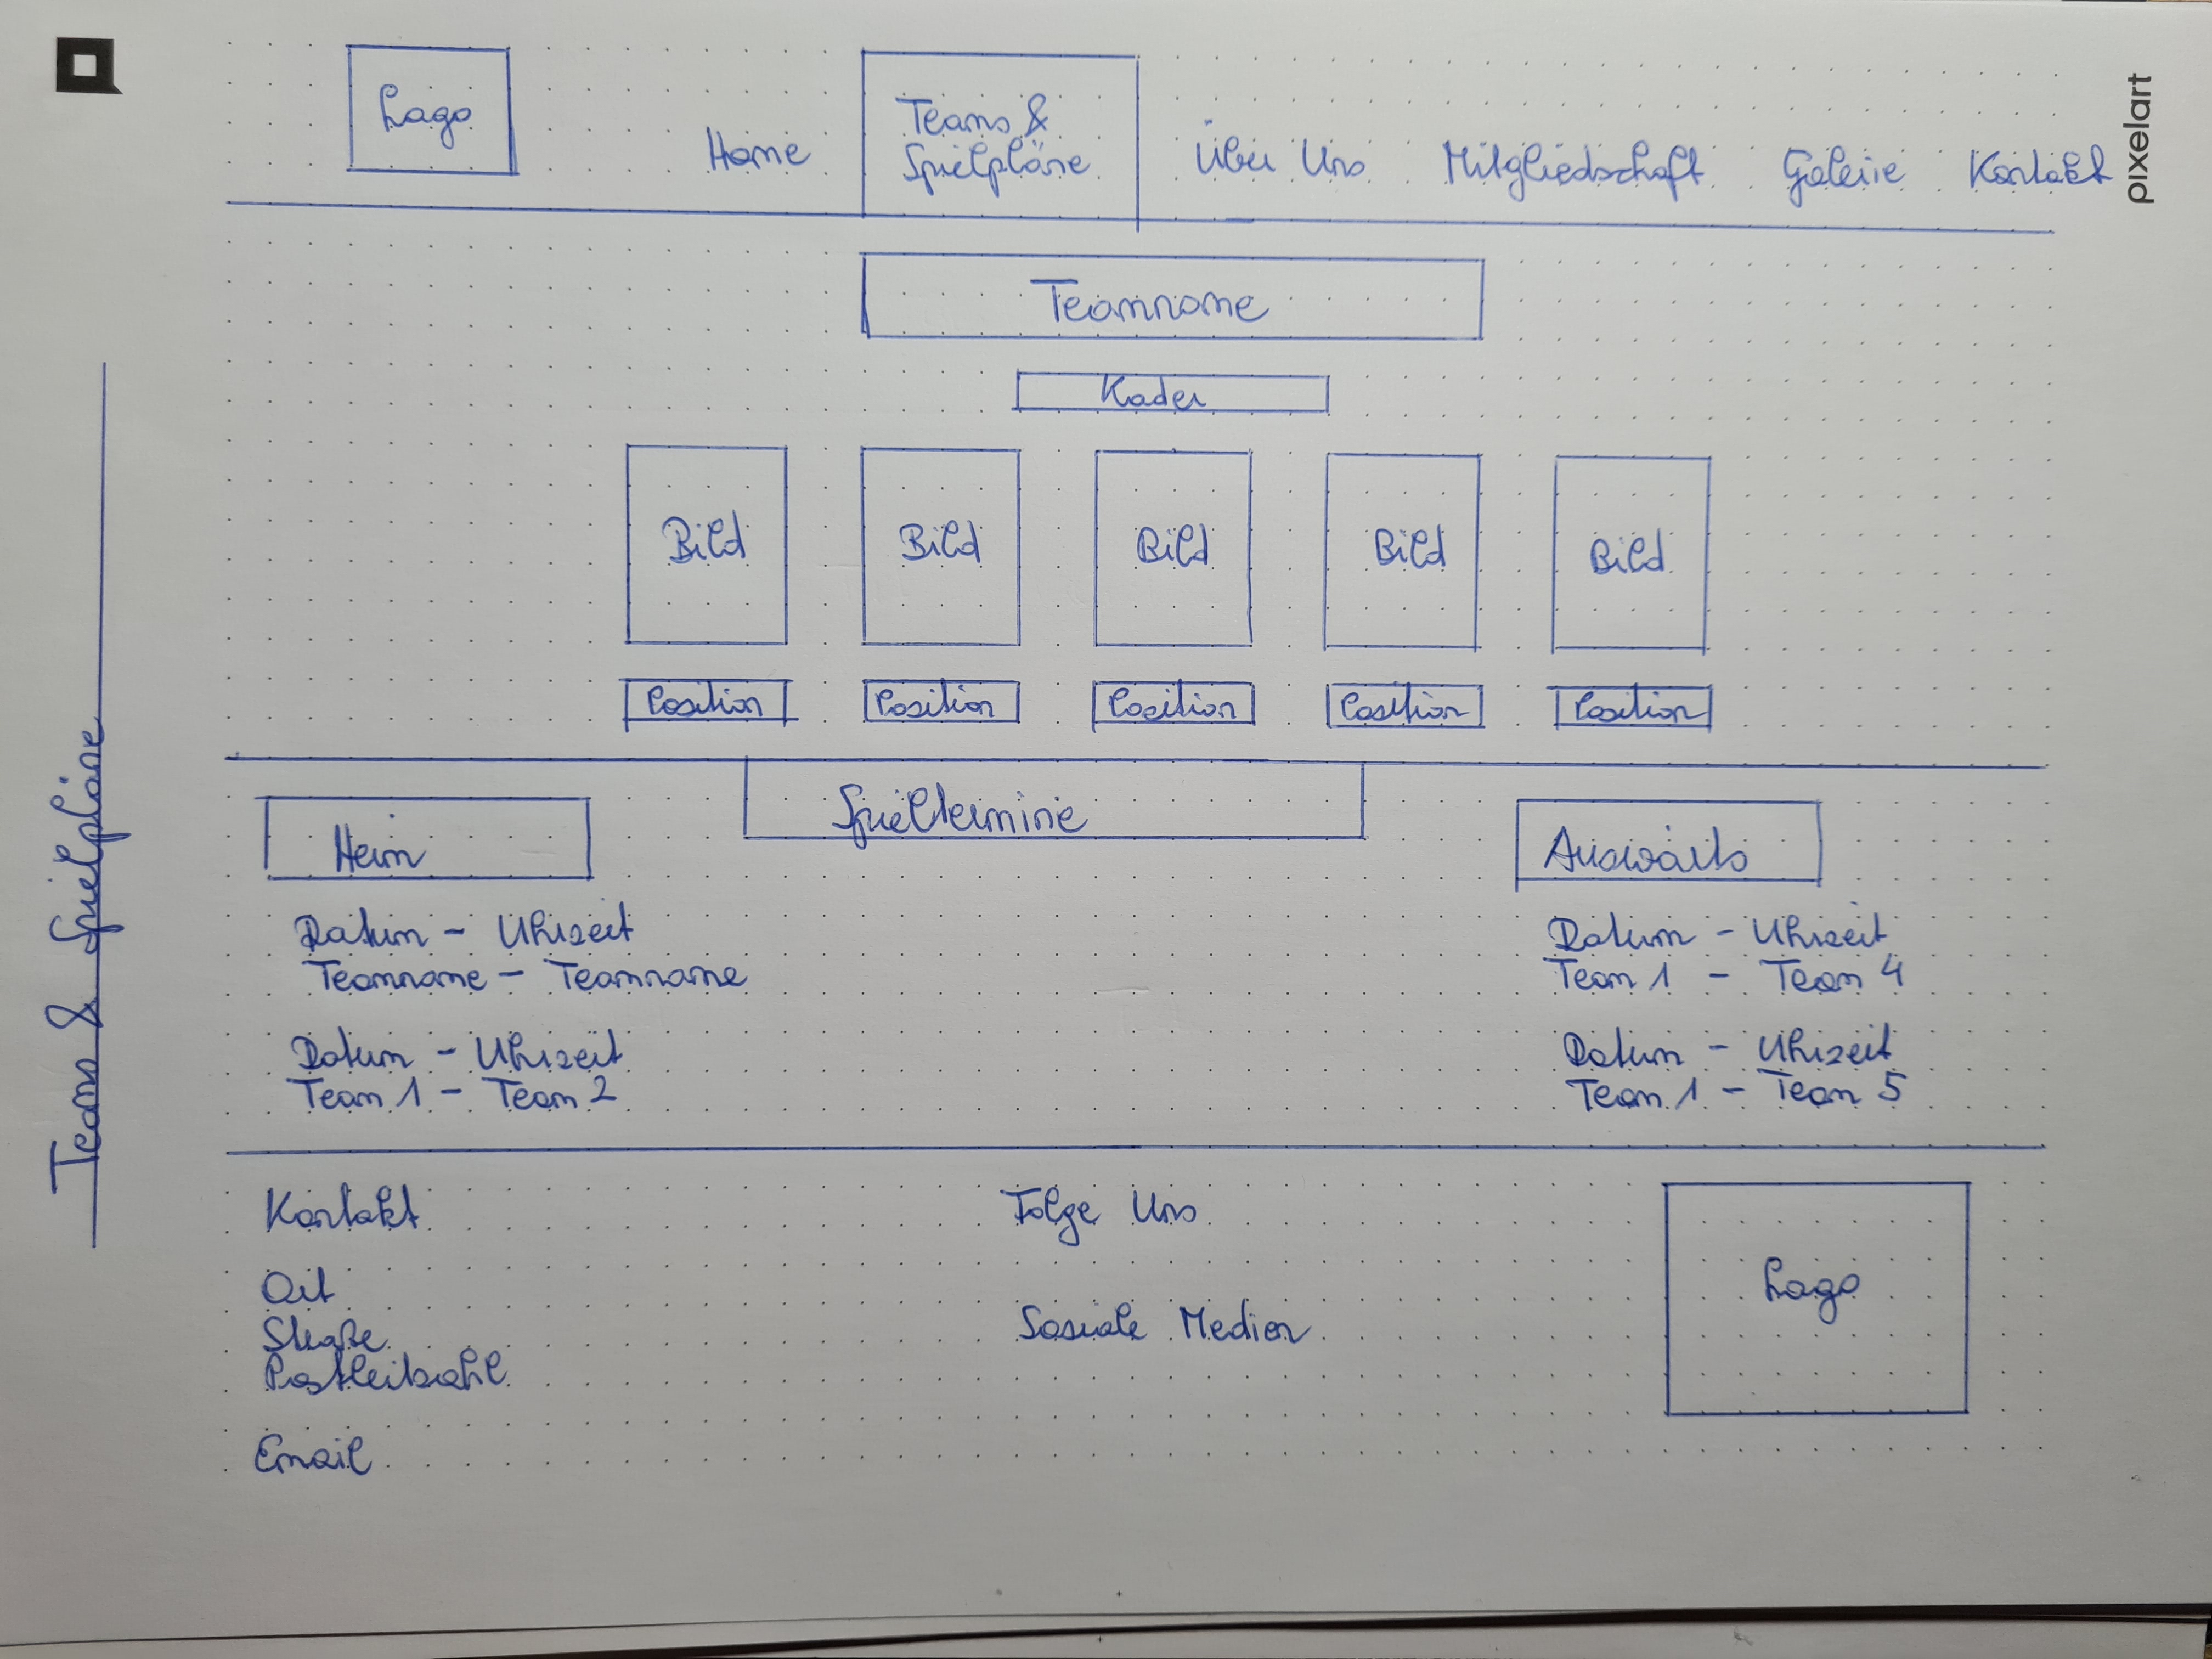 Logo
Home
Teams &
Spielpläne
Über Uns
Mitgliedschaft
Galerie
Kontakt
pixelart
Teams & Spielpläne
Teamname
Kader
Bild Bild Bild Bild Bild
Position Position Position Position Position
Spieltermine
Heim
Datum - Uhrzeit
Teamname - Teamname
Datum - Uhrzeit
Team 1 - Team 2
Auswärts
Datum - Uhrzeit
Team 1 - Team 4
Datum - Uhrzeit
Team 1 - Team 5
Kontakt
Ort
Straße
Postleitzahl
Email
Folge Uns
Soziale Medien
Logo